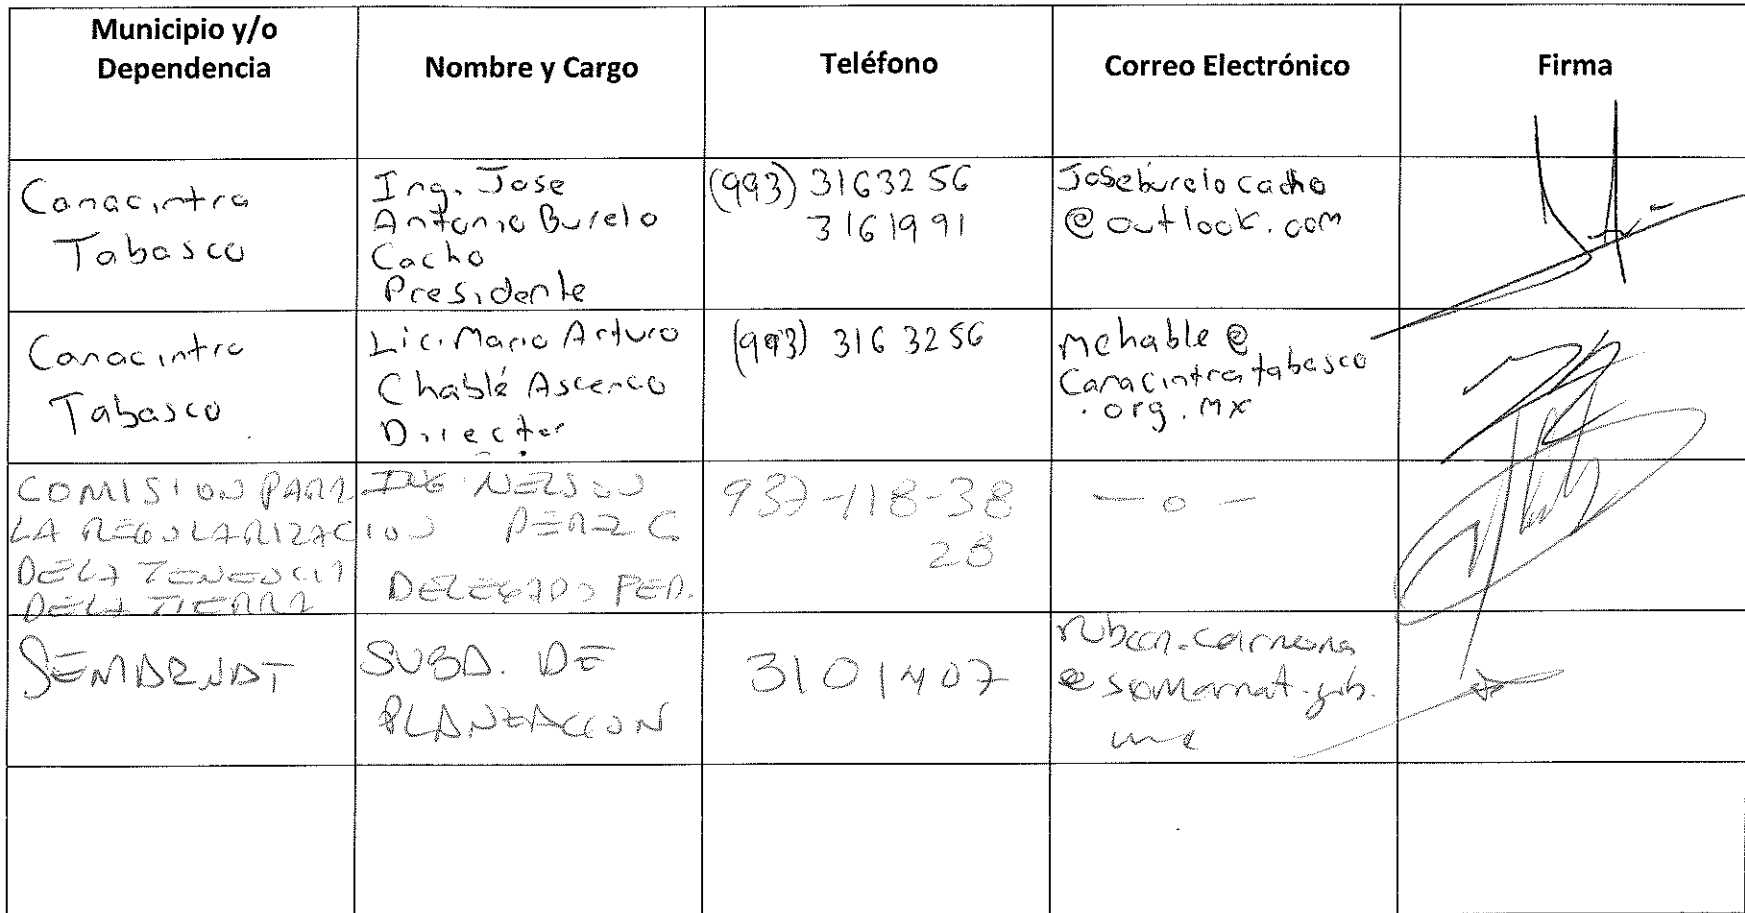 Municipio y/o
Dependencia
Nombre y Cargo
Teléfono
Correo Electrónico
Firma
Canacintra
Tabasco
Ing. Jose
Antonio Burelo
Cacho
Presidente
(993) 3163256
3161991
Joseburelocacho
@outlook.com
Canacintra
Tabasco
Lic. Mario Arturo
Chablé Ascenco
Director
(993) 316 3256
mchable@
Canacintratabasco
.org.mx
COMISION PARA
LA REGULARIZACION
DE LA TENENCIA
DE LA TIERRA
ING. NELSON
PEREZ C
DELEGADO FED.
937-118-38
28
— o —
SEMARNAT
SUBD. DE
PLANEACION
3101407
ruben.carmona
@semarnat.gob.
mx